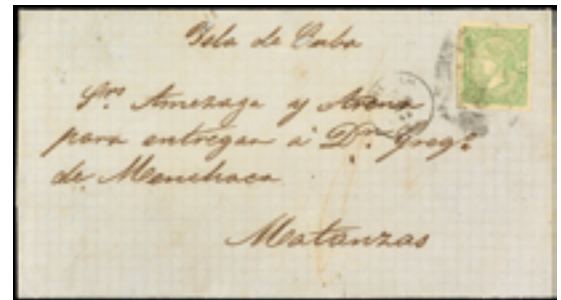 Isla de Cuba
Sres. Amezaga y Arena
para entregar á Dn. Grego.
de Menchaca
Matanzas